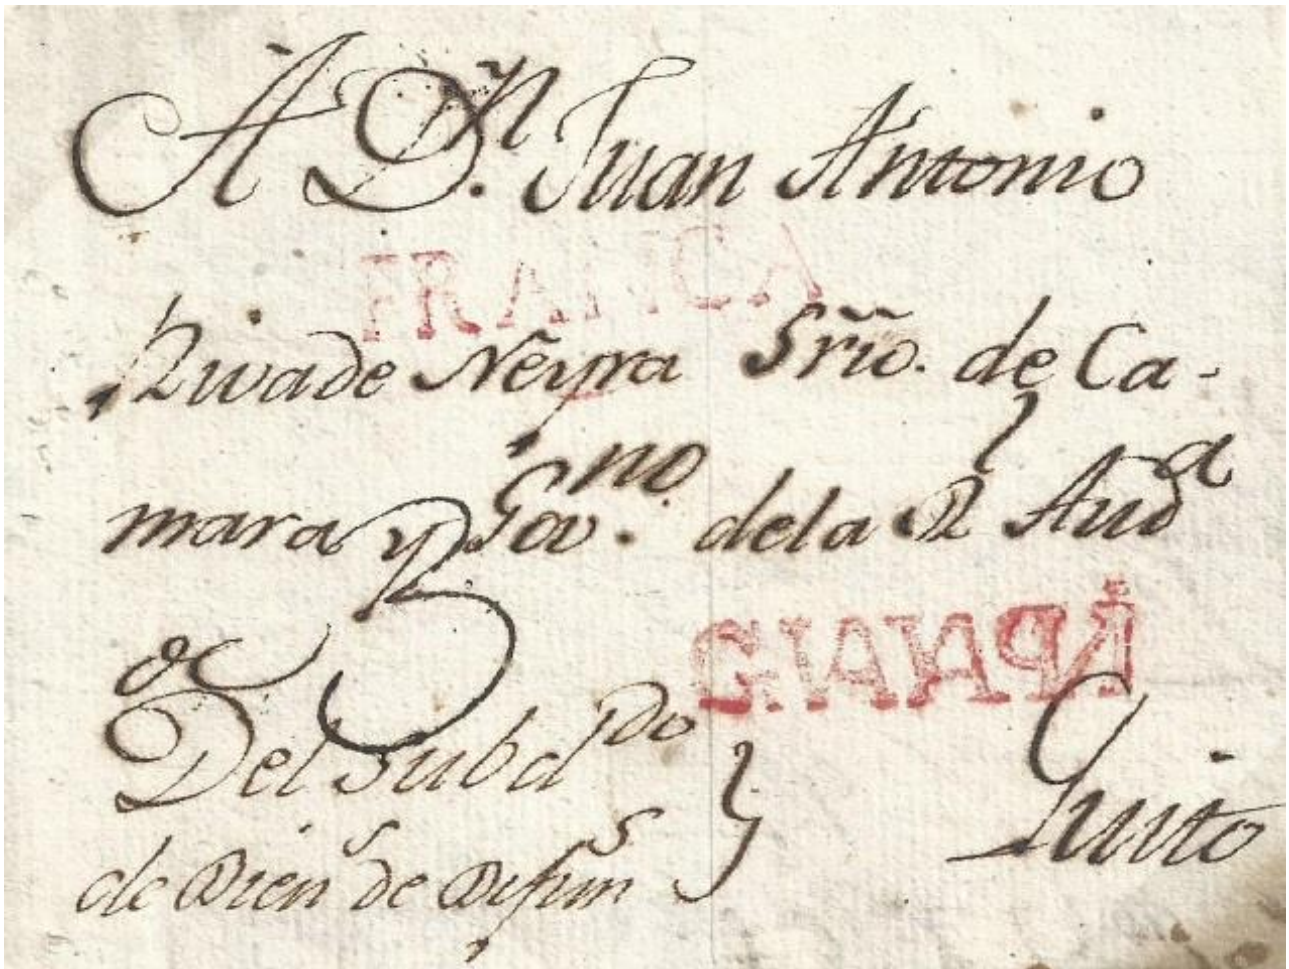 A D.n Juan Antonio
FRANCA
Rivade Neyra Srío. de Ca-
mara y Gov.no de la Rl Auda
de
GUAYAQUIL
Del Subdo
de Biens de Difuns
Quito